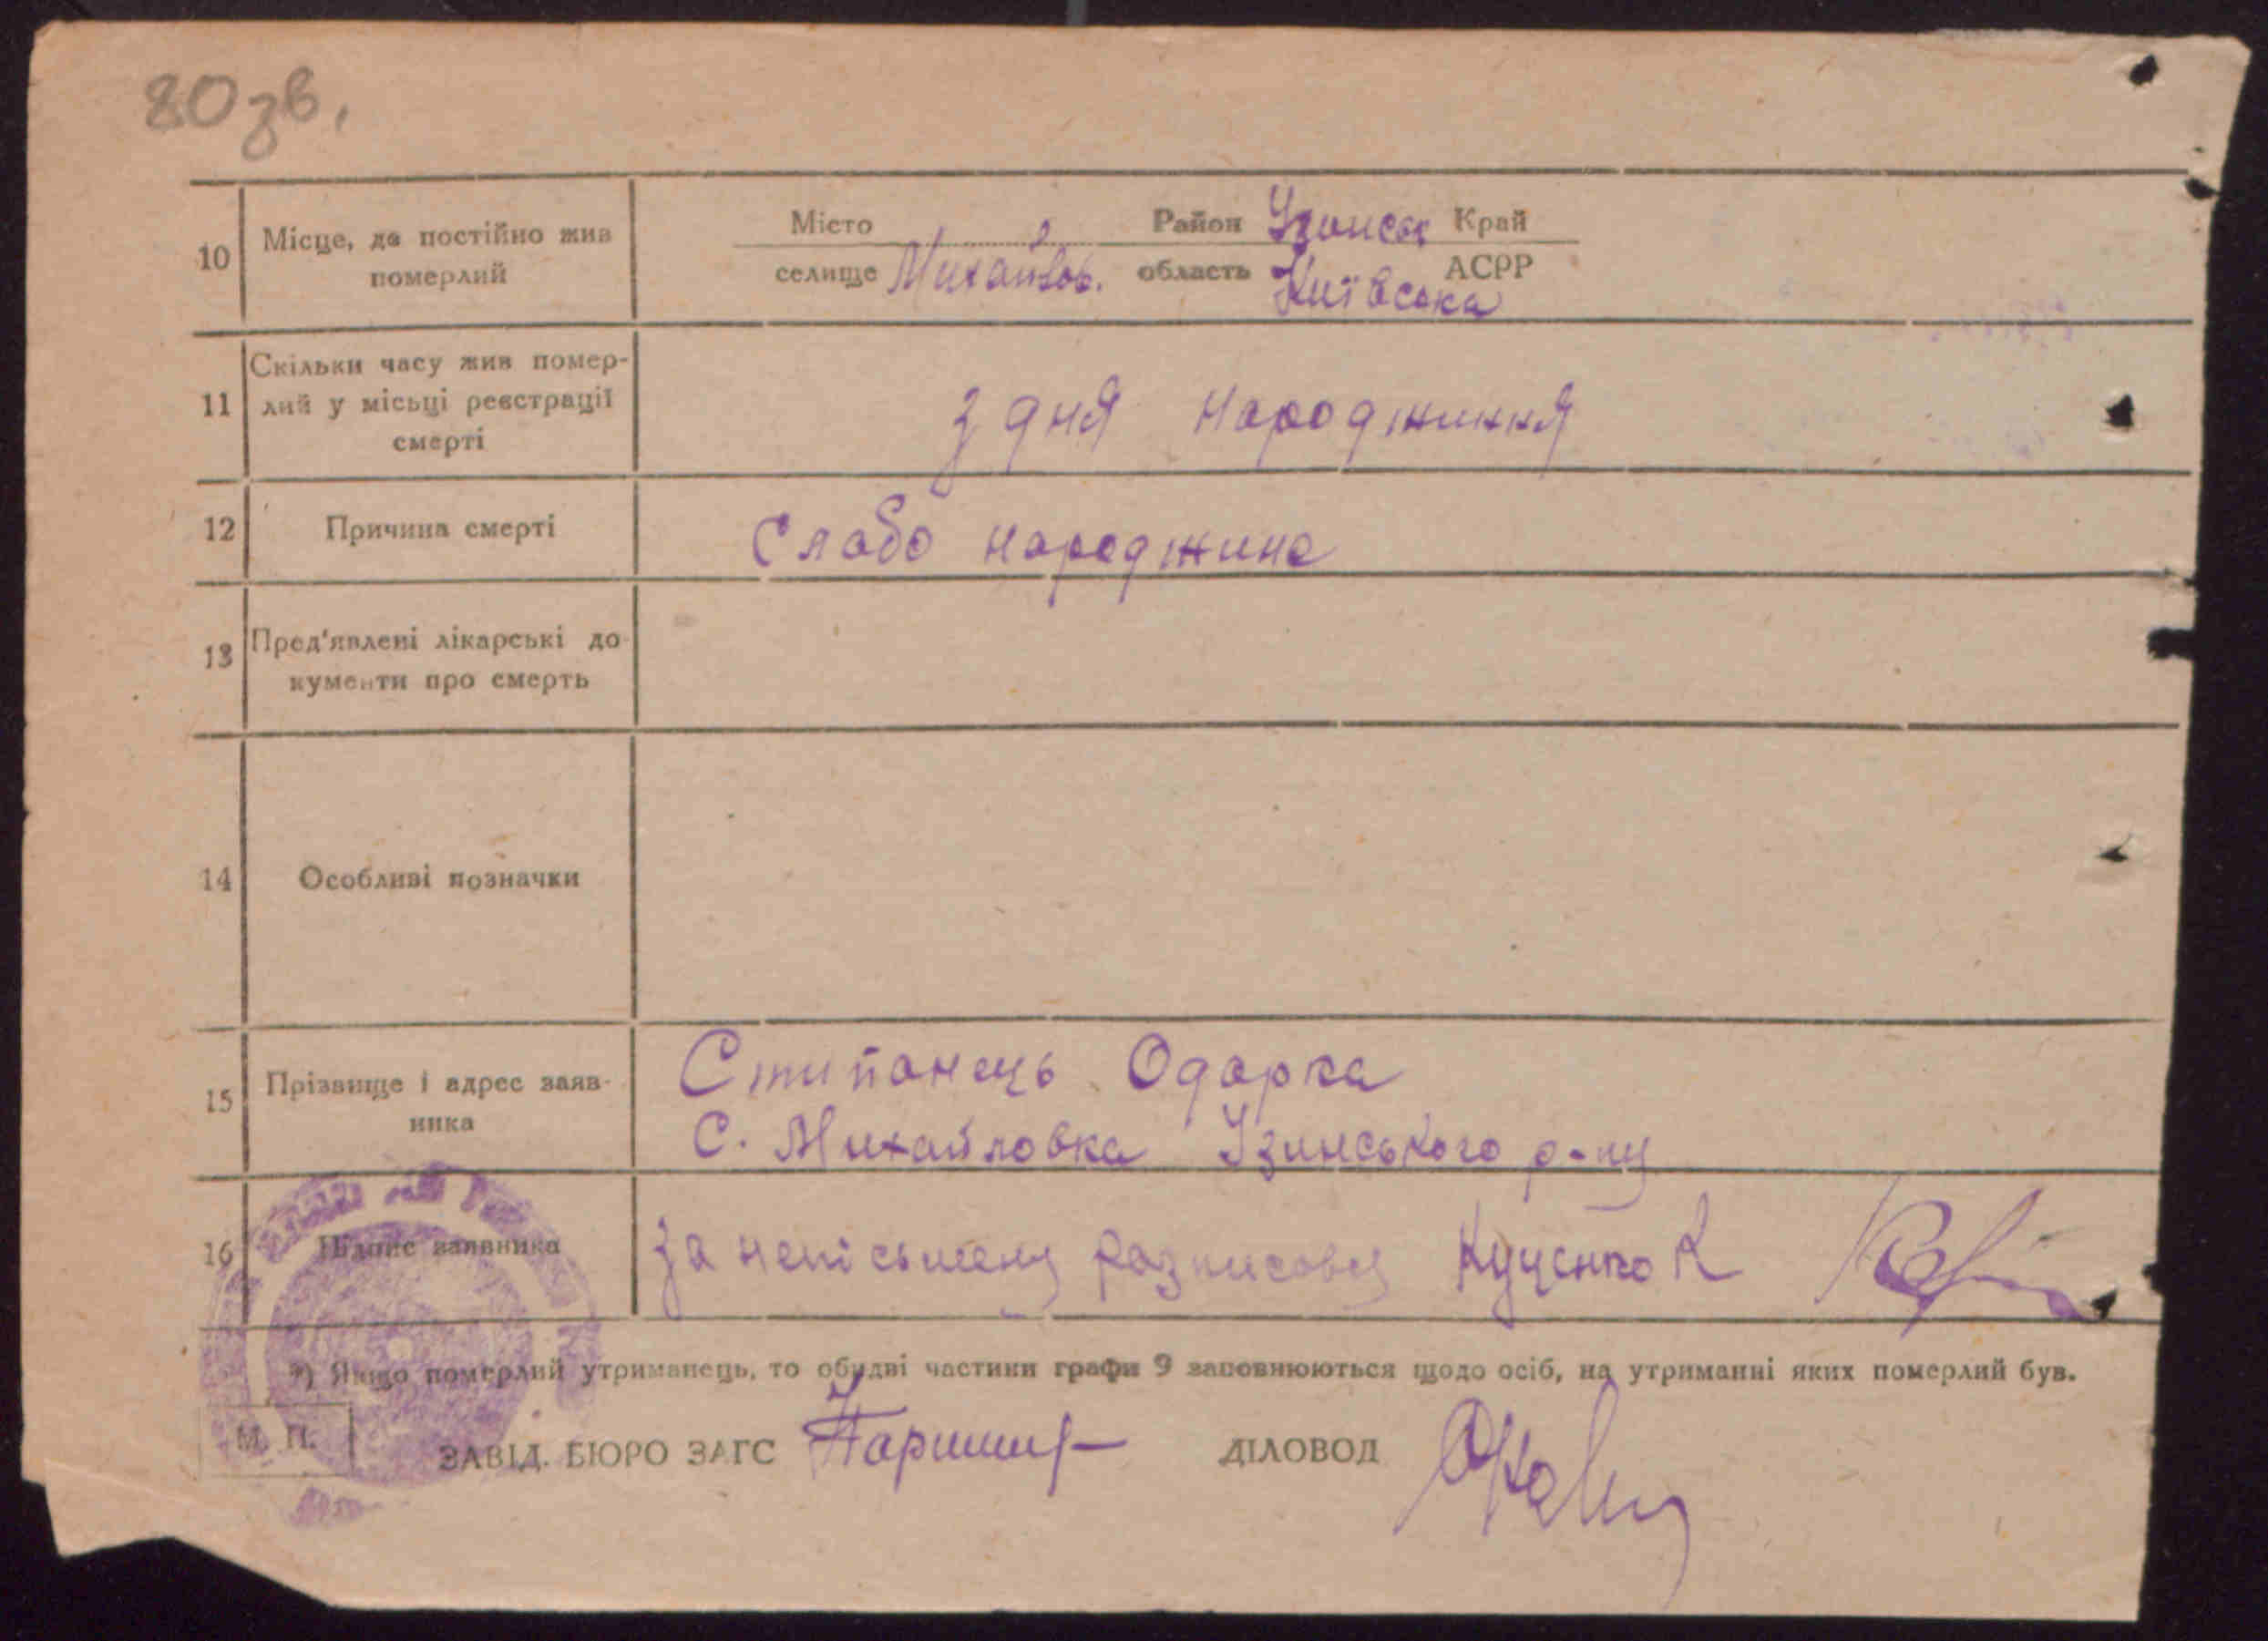 80 зв.
10 Місце, де постійно жив померлий
Місто Район Узинськ Край
селище Михайлов. область Київська АСРР
11 Скільки часу жив помер-
лий у місьці реєстрації
смерті
з дня народжиння
12 Причина смерті Слабо народжина
13 Пред'явлені лікарські до-
кументи про смерть
14 Особливі позначки
15 Прізвище і адрес заяв-
ника
Стипанець Одарка
С. Михайловка Узинського р-ну
16 Підпис заявника за неписьмену розписовся Куценко К
*) Якщо померлий утриманець, то обидві частини графи 9 заповнюються щодо осіб, на утриманні яких померлий був.
М. П.
ЗАВІД. БЮРО ЗАГС ДІЛОВОД